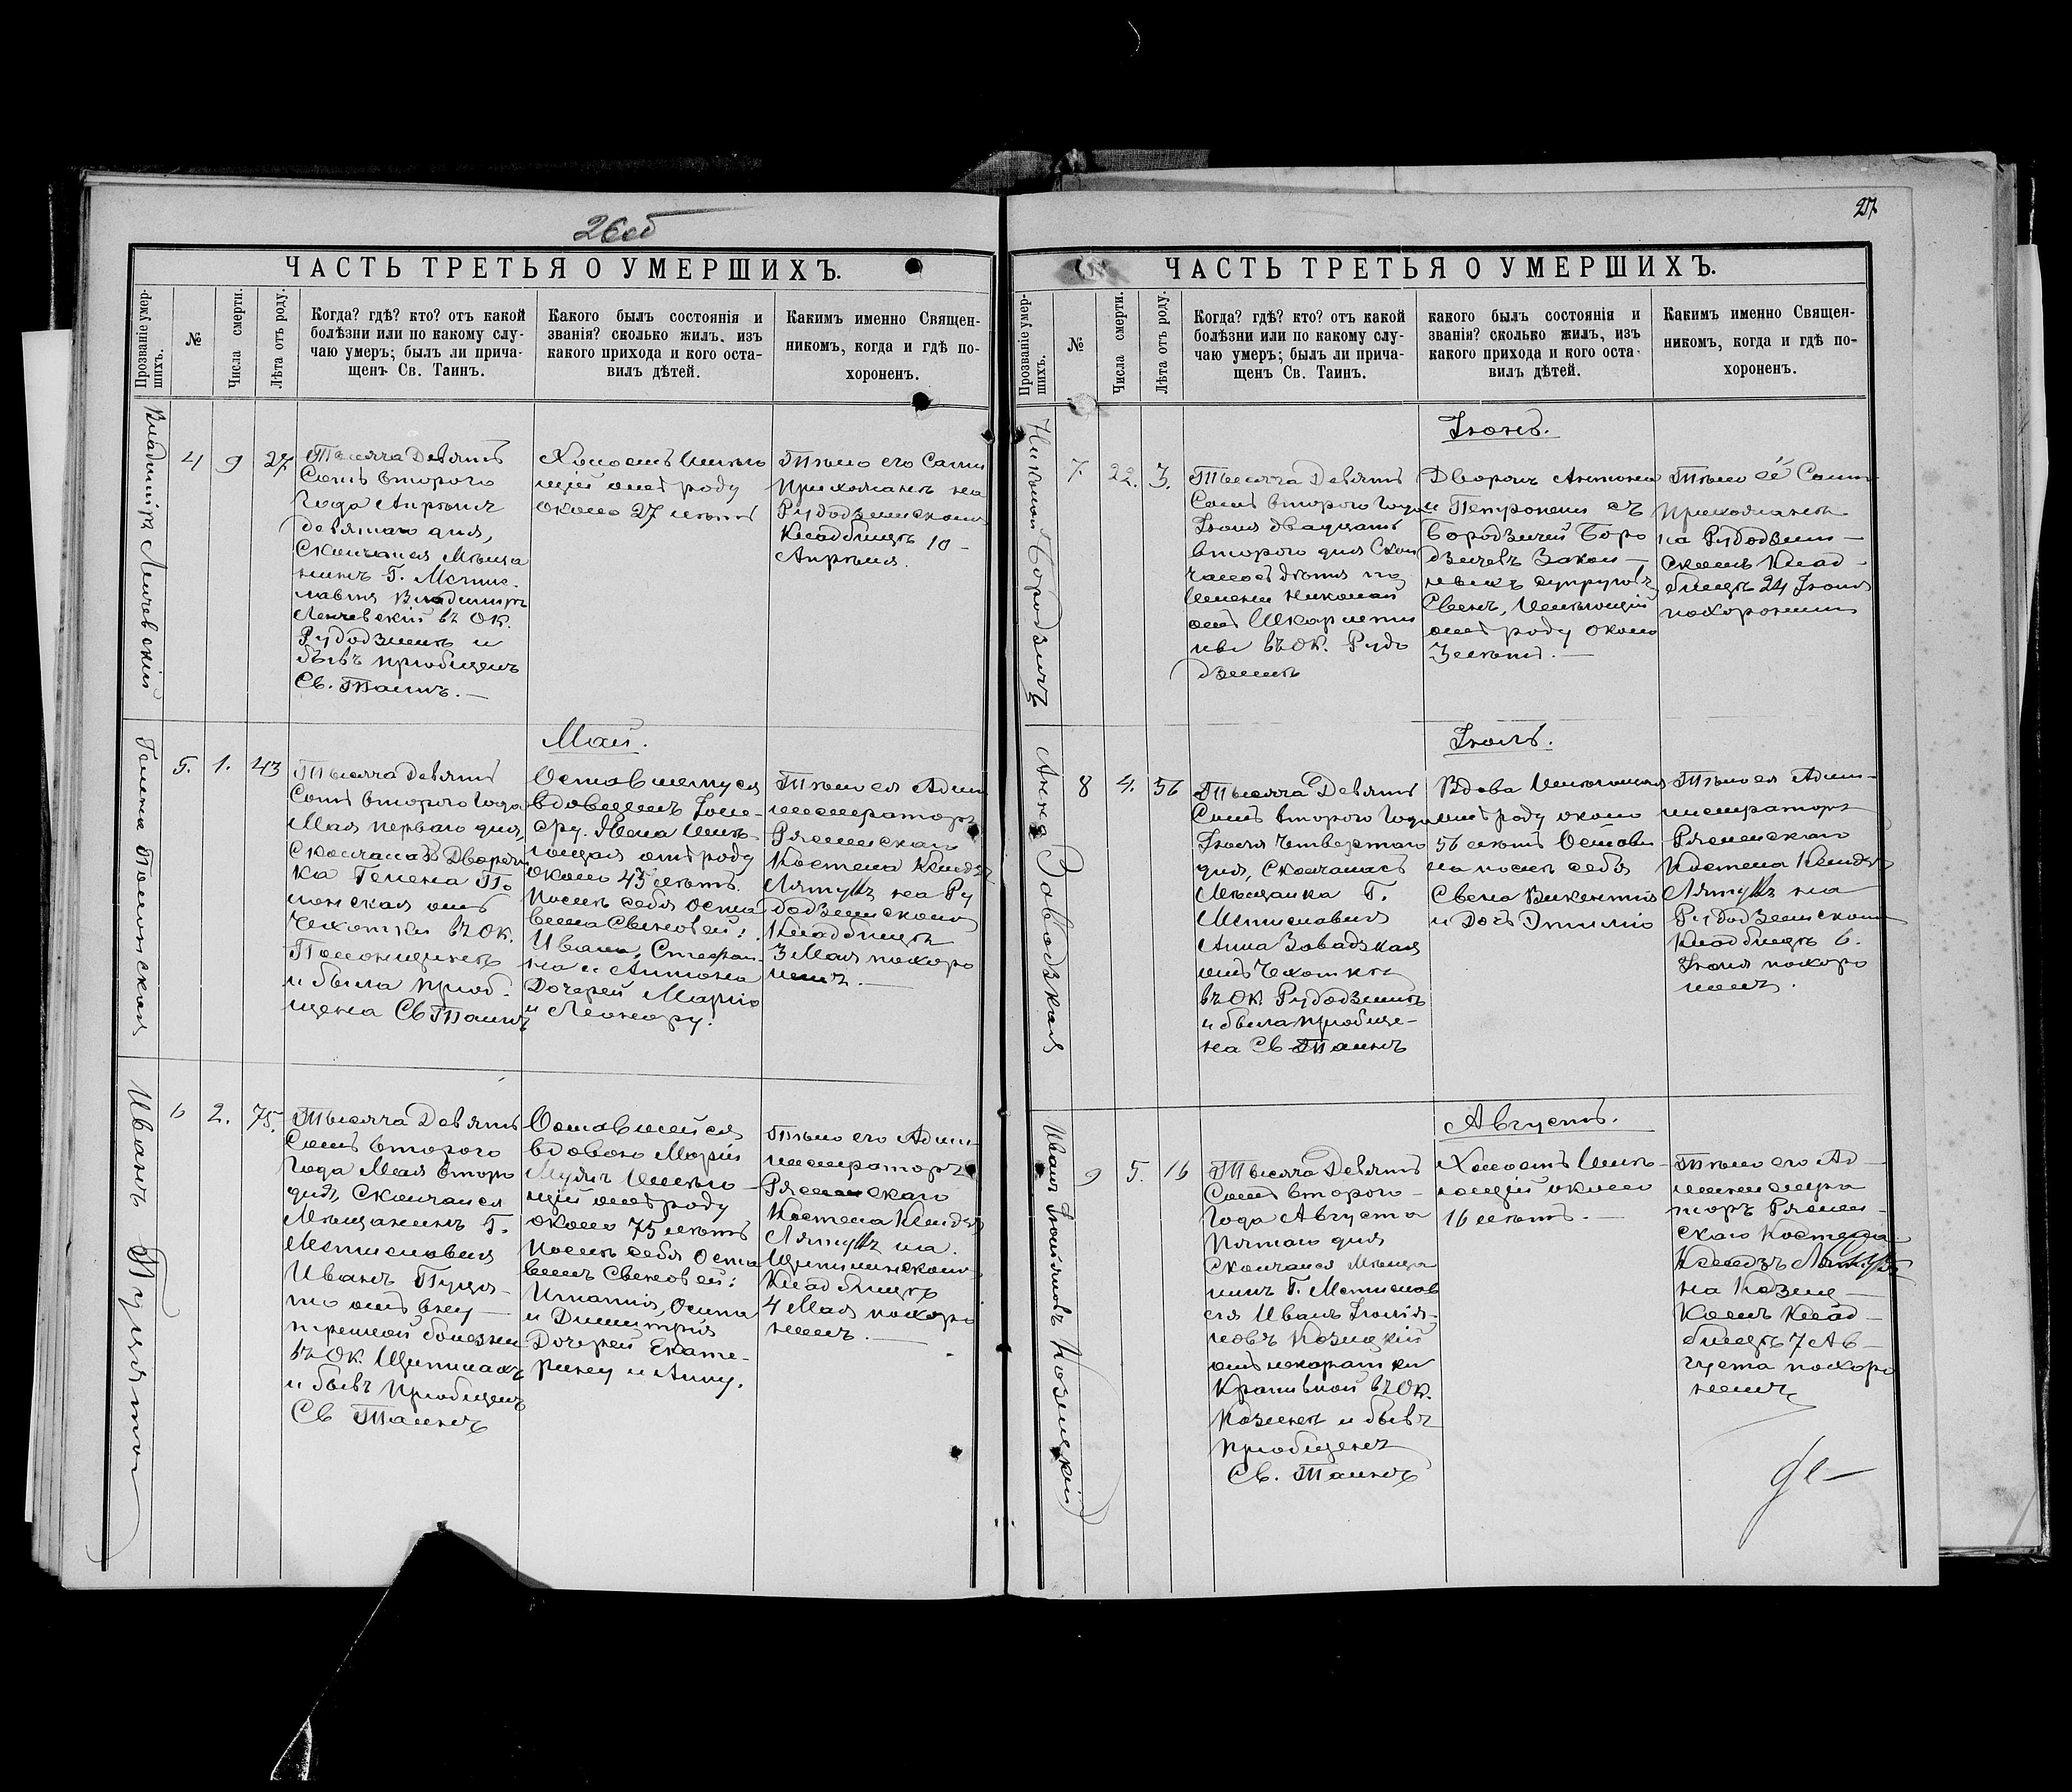 26об
ЧАСТЬ ТРЕТЬЯ О УМЕРШИХЪ.
Прозваніе умер-
шихъ.
№
Числа смерти.
Лѣта отъ роду.
Когда? гдѣ? кто? отъ какой
болѣзни или по какому слу-
чаю умеръ; былъ ли прича-
щенъ Св. Таинъ.
Какого былъ состоянія и
званія? сколько жилъ, изъ
какого прихода и кого оста-
вилъ дѣтей.
Какимъ именно Священ-
никомъ, когда и гдѣ по-
хороненъ.
Владиміръ Ленчевскій
4
9
27.
Тысяча Девять
Сотъ второго
Года Апрѣля
девятаго дня,
Скончался Мѣща
нинъ Г. Мстис-
лавля Владиміръ
Ленчевскій въ ОК.
Рудодзешнѣ и
бывъ пріобщенъ
Св. Таинъ.—
Холостъ Имѣю
щій отъ роду
около 27 лѣтъ
Тѣло его Сами
Прихожанѣ на
Кладбищѣ 10-
Апрѣля.
Май.
Гелена Полонская
5.
1.
43
Тысяча девять
Сотъ второго Года
Мая перваго дня,
Скончалась Дворян
ка Гелена По
лонская отъ
Чехотки въ ОК.
Полонщинѣ
и была пріоб-
щена Св Таинъ
Оставшемуся
вдовцемъ
Имѣ-
ющая отъ роду
около 43 лѣтъ.
Послѣ себя оста
вила Сыновей:
Ивана, Стефа-
на и Антона
Дочерей Марію
и Леонору.
Тѣло ея Адми
нистраторъ
Рясненскаго
Костела Ксендзъ
на Ру
додзешскомъ
Кладбищѣ
3 Мая похоро
ненъ.—
Иванъ Пуцято
6
2.
75.
Тысяча Девять
Сотъ второго
Года Мая второ
дня, Скончался
Мѣщанинъ Г.
Мстиславля
Иванъ Пуця-
то отъ вну-
тренной болезни
въ ОК. Щитинахъ
и бывъ Пріобщенъ
Св Таинъ
Оставшейся
вдовою Маріи
Имѣю
щій отъ роду
около 75 лѣтъ
Послѣ себя Оста
вилъ Сыновей:
Игнатія, Осипа
и Димитрія
Дочерей Екате-
рину и Анну.
Тѣло его Адми-
нистраторъ
Рясненскаго
Костела Ксендзъ
на
Щитинскомъ
Кладбищѣ
4 Мая похоро
ненъ.—
27
ЧАСТЬ ТРЕТЬЯ О УМЕРШИХЪ.
Прозваніе умер-
шихъ.
№
Числа смерти.
Лѣта отъ роду.
Когда? гдѣ? кто? отъ какой
болѣзни или по какому слу-
чаю умеръ; былъ ли прича-
щенъ Св. Таинъ.
какого былъ состоянія и
званія? сколько жилъ, изъ
какого прихода и кого оста-
вилъ дѣтей.
Какимъ именно Священ-
никомъ, когда и гдѣ по-
хороненъ.
Іюнь.
Николай Бородзичъ
7.
22.
3.
Тысяча Девять
Сотъ второго Года
Іюня двадцать
второго дня Скон
чалось дѣтя по
Имени Николай
отъ Шкарлети
ны въ ОК. Рудо
дзешнѣ
Дворянъ Антона
и Петронели съ
Бородзичей Боро
дзичевъ Закон-
ныхъ супруговъ
Сынъ, Имѣющій
отъ роду около
3 лѣтъ.—
Тѣло её Сами
прихожанѣ
на Рудодзеш-
скомъ Клад-
бищѣ 24 Іюня
похоронили
Іюль.
Анна Завадзкая
8
4.
56
Тысяча Девять
Сотъ второго Года
Іюля Четвертаго
дня, Скончалась
Мѣщанка Г.
Мстиславля
Анна Завадзкая
отъ Чехотки
въ ОК. Рудодзешнѣ
и была пріобще-
на Св Таинъ
Вдова Имѣющая
отъ роду около
56 лѣтъ Остави
ла послѣ себя
Сына Викентія
и Дочь Эмилію
Тѣло ея Адми-
нистраторъ
Рясненскаго
Костела Ксендзъ
на
Рудодзешскомъ
Кладбищѣ 6.
Іюля похоро
ненъ.
Августъ.
Иванъ Іюліяновъ Козицкій
9
5.
16
Тысяча Девять
Сотъ второго-
Года Августа
Пятаго дня
Скончался Мѣща
нинъ Г. Мстислав
ля Иванъ Іюлія-
новъ Козицкій
отъ
въ ОК.
и бывъ
пріобщенъ
Св. Таинъ
Холостъ Имѣ-
ющій около
16 лѣтъ.—
Тѣло его Ад-
министра
торъ Ряснен-
скаго Костела
Ксендзъ
на
комъ Клад-
бищѣ 7 Ав-
густа похоро
ненъ